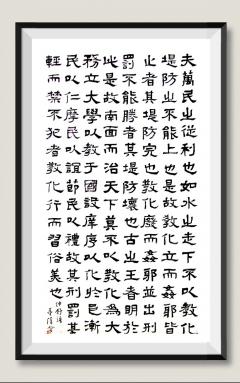 夫萬民之從利也如水之走下不以教化
堤防之不能止也是故教化立而姦邪皆
止者其堤防完也教化廢而姦邪並出刑
罰不能勝者其堤防壞也古之王者明於
此是故南面而治天下莫不以教化為大
務立大學以教于國設庠序以化於邑漸
民以仁摩民以誼節民以禮故其刑罰甚
輕而禁不犯者教化行而習俗美也